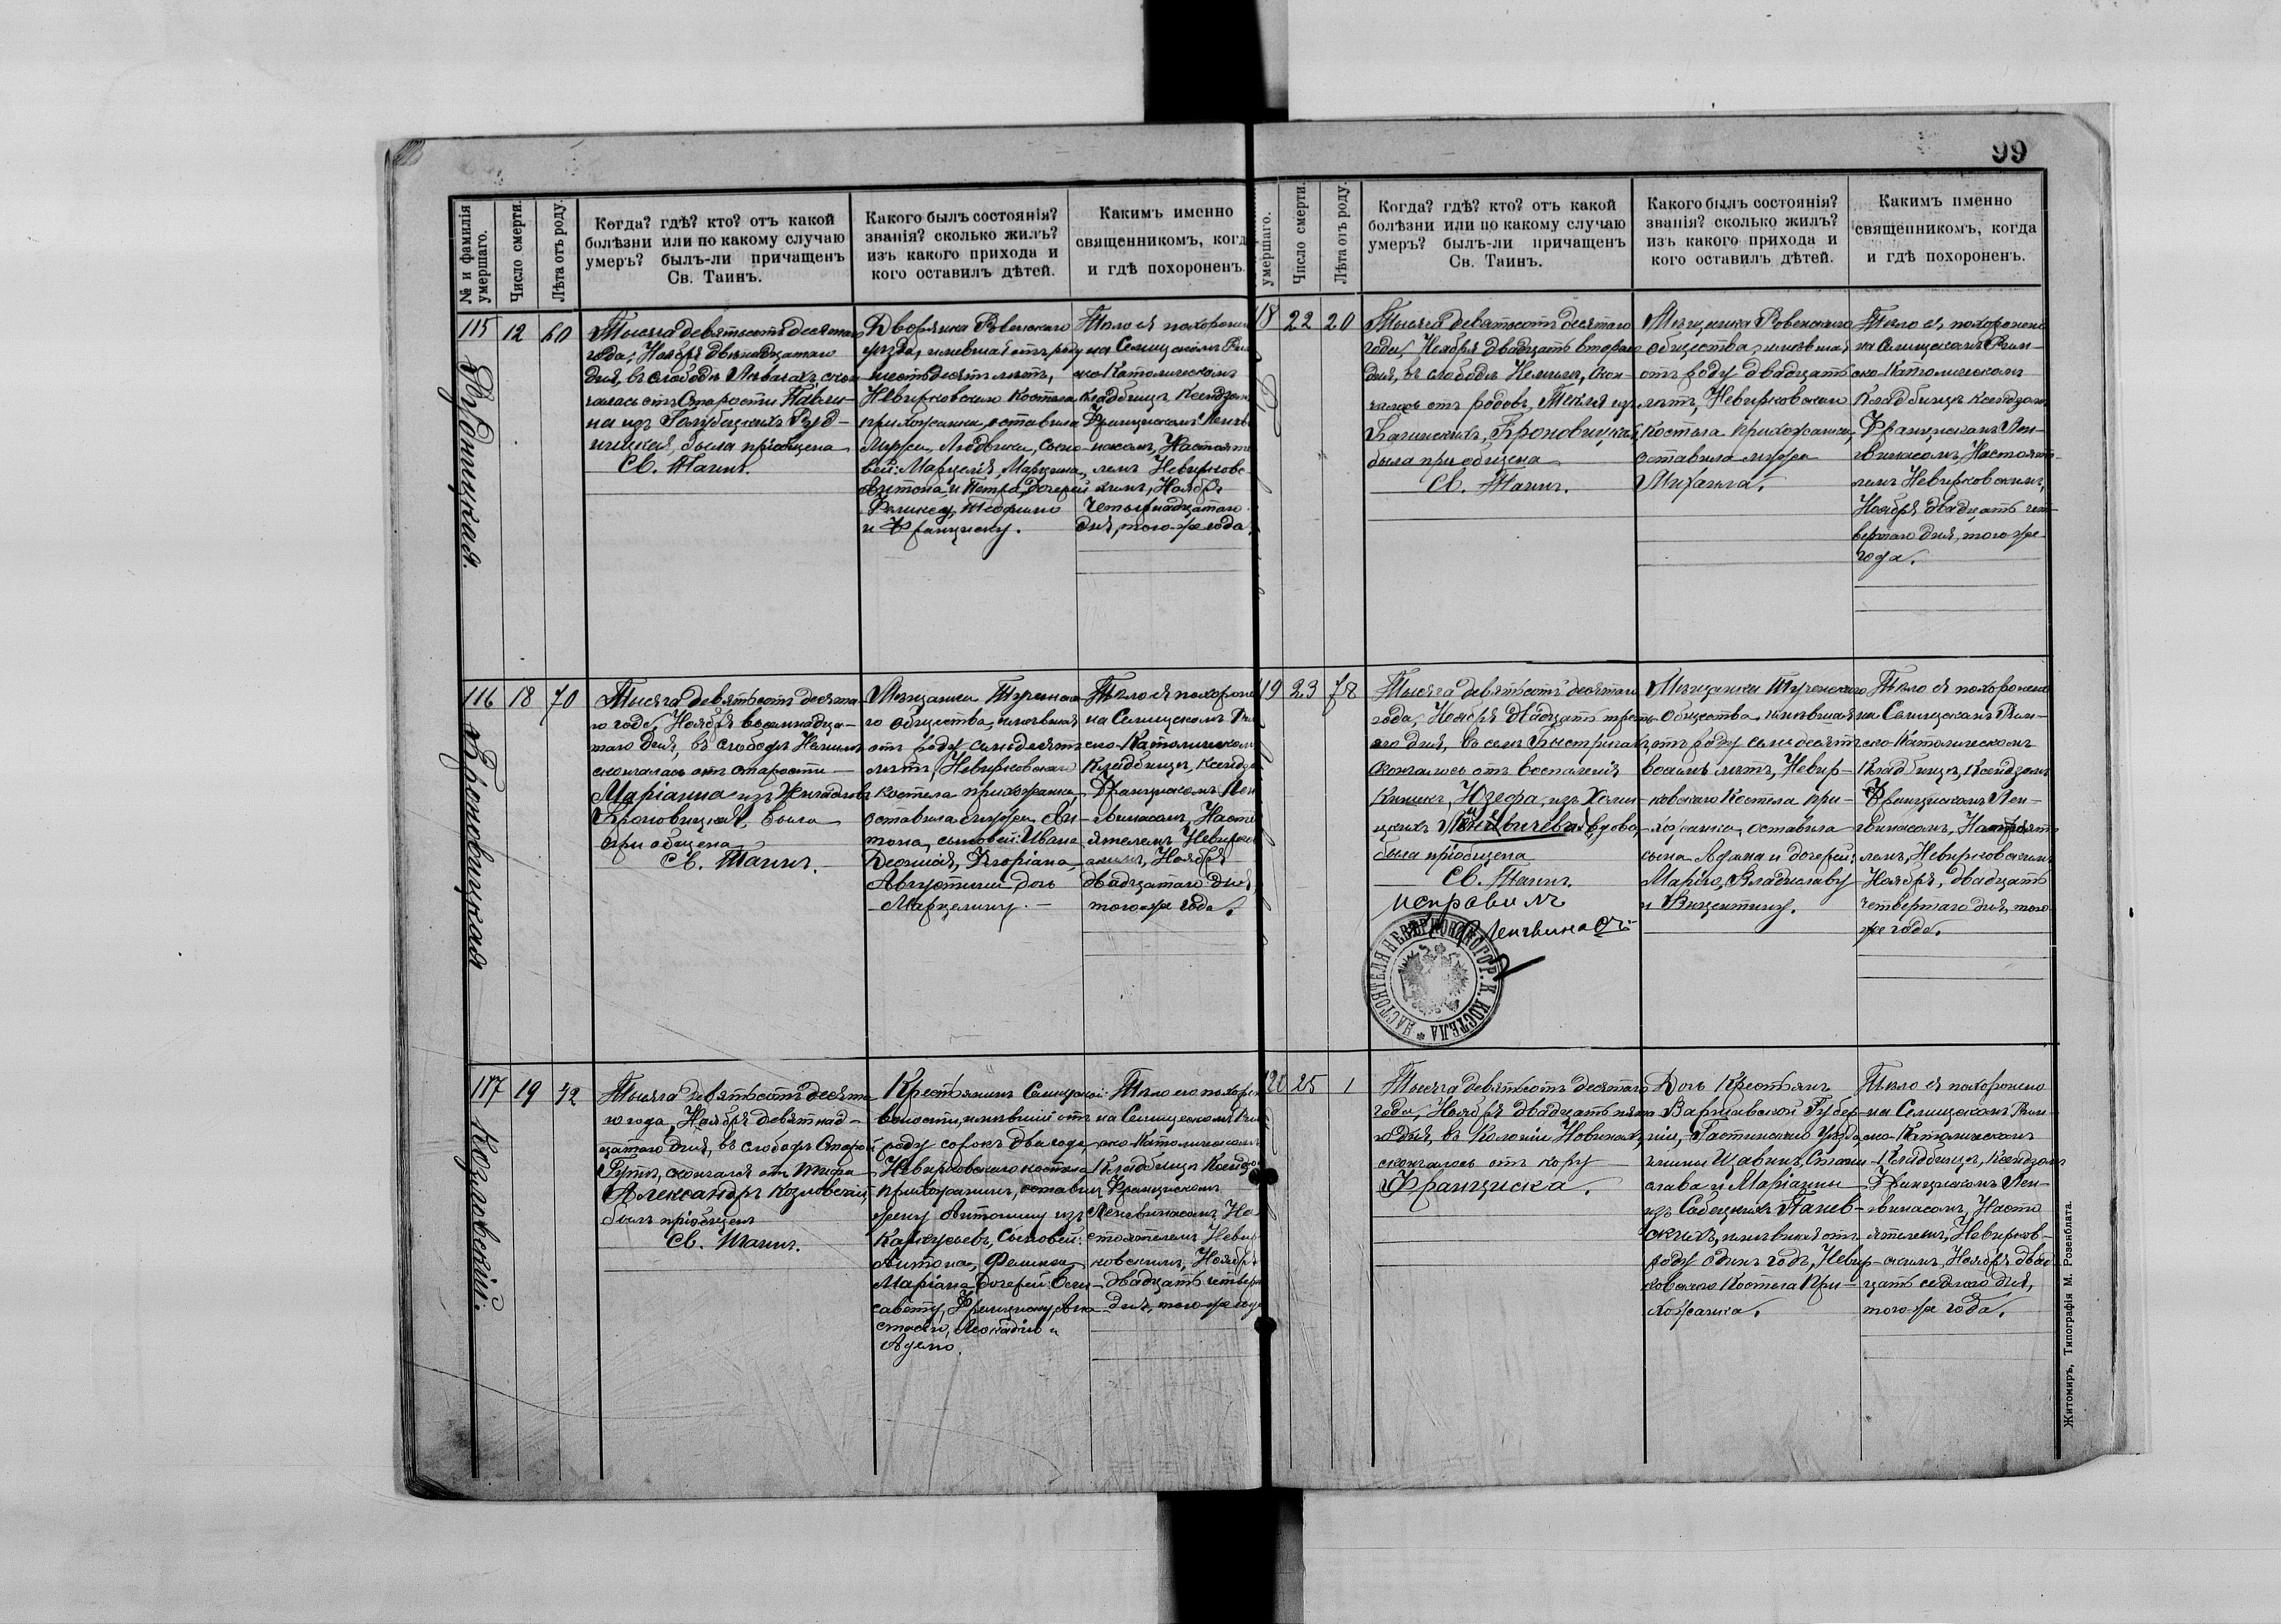 99
№ и фамилія
умершаго.
Число смерти.
Лѣта отъ роду.
Когда? гдѣ? кто? отъ какой
болѣзни или по какому случаю
умеръ? былъ-ли причащенъ
Св. Таинъ.
Какого былъ состоянія?
званія? сколько жилъ?
изъ какого прихода и
кого оставилъ дѣтей.
Каким именно
священникомъ, когд
и гдѣ похороненъ.
115
Рудницкая.
12
60
Тысяча девятьсотъ десятаго
года, Ноября двѣнадцатаго
дня, въ слободѣ скон-
чалась отъ старости Павли-
на изъ Голубицкихъ Руд-
ницкая, была пріобщена
Св. Таинъ.
Дворянка Ровенскаго
уѣзда, имѣвшая отъ роду
шестьдесятъ лѣтъ,
Невирковскаго костела
прихожанка, оставила
мужа Людвика, сыно-
вей: Марцелія, Марцина,
Антона и Петра, дочерей
Феликсу, Теофилю
и Франциску.
Тѣло ея похоронено
на Селищскомъ Рим
ско-Католическомъ
Кладбищѣ Ксендзомъ
Францискомъ Ленг
винасомъ, Настояте
лемъ Невирковс-
кимъ, Ноября
Четырнадцатаго
дня, того-же года.
116
Броновицкая
18
70
Тысяча девятьсотъ десята-
го года, Ноября восемнадца-
таго дня, въ слободѣ Немиля
скончалась отъ старости
Маріанна изъ
Броновицкая, была
пріобщена
Св. Таинъ.
Мѣщанка Тученска
го общества, имѣвшая
отъ роду семьдесятъ
лѣтъ, Невирковскаго
костела прихожанка,
оставила мужа Ан-
тона, сыновей: Ивана,
Діонисія, Флоріана,
Августина дочь
Марцелину.
Тѣло ея похороне
на Селищскомъ Рим
ско-Католическомъ
Кладбищѣ, Ксендзо
Францискомъ Лен
гвинасомъ, Насто
ятелемъ Невирков
скимъ, Ноября
двадцатаго дня
того-же года.
117
Козловскій.
19
42
Тысяча девятьсотъ десята
го года, Ноября девятнад-
цатаго дня, въ слободѣ Старой
Гутѣ, скончался отъ тифа
Александръ Козловскій,
былъ пріобщенъ
Св. Таинъ.
Крестьянинъ Селищской
волости, имѣвшій отъ
роду сорокъ два года,
Невирковскаго костела
прихожанинъ, оставилъ
жену Антонину изъ
сыновей:
Антона, Феликса,
Маріана дочерей: Ели-
савету, Франциску, Ана
стасію, Леокадію и
Адель.
Тѣло его похоро
на Селищскомъ Рим
ско-Католическомъ
Кладбищѣ Ксендзо
Францискомъ
Ленгвинасомъ, На
стоятелемъ Невир
ковскимъ, Ноября
двадцать четверт
дня, того-же года
умершаго.
Число смерти.
Лѣта отъ роду.
Когда? гдѣ? кто? отъ какой
болѣзни или по какому случаю
умеръ? былъ-ли причащенъ
Св. Таинъ.
Какого былъ состоянія?
званія? сколько жилъ?
изъ какого прихода и
кого оставилъ дѣтей.
Какимъ именно
священникомъ, когда
и гдѣ похороненъ.
18
22
20
Тысяча девятьсотъ десятаго
года, Ноября двадцать втораго
дня, въ слободѣ Немиля, скон-
чалась отъ родовъ, Текля изъ
Броновицкая,
была пріобщена
Св. Таинъ.
Мѣщанка Ровенскаго
общества, имѣвшая
отъ роду двадцать
лѣтъ, Невирковскаго
костела прихожанка,
оставила мужа
Михаила.
Тѣло ея похоронено
на Селищскомъ Рим-
ско-Католическомъ
Кладбищѣ Ксендзомъ
Францискомъ Лен-
гвинасомъ, Настояте-
лемъ Невирковскимъ,
Ноября двадцать чет-
вертаго дня, того-же
года.
19
23
78
Тысяча девятьсотъ десятаго
года, Ноября двадцать треть
яго дня, въ селѣ Быстричахъ,
скончалась отъ воспаленія
кишекъ, Юзефа, изъ
вдова,
была пріобщена
Св. Таинъ.
Исправилъ
Ленгвинасъ
НАСТОЯТЕЛЯ НЕВИРКОВСКАГО Р. К. КОСТЕЛА
Мѣщанка Тученскаго
общества, имѣвшая
отъ роду семьдесятъ
восемь лѣтъ, Невир-
ковскаго Костела при-
хожанка, оставила
сына Адама и дочерей:
Марію, Владиславу
и Викентину.
Тѣло ея похоронено
на Селищскомъ Рим-
ско-Католическомъ
Кладбищѣ, Ксендзомъ
Францискомъ Лен-
гвинасомъ, Настояте
лемъ, Невирковскимъ
Ноября, двадцать
четвертаго дня, того
же года.
120
25
1
Тысяча девятьсотъ десятаго
года, Ноября двадцать пята
го дня, въ Колоніи Новинахъ,
скончалась отъ кору
Франциска.
Дочь Крестьянъ
Варшавской Губер-
ніи, Гостинскаго уѣзда,
гмины Щавинъ, Стани-
слава и Маріанны
изъ
скихъ, имѣвшая отъ
роду одинъ годъ, Невир-
ковскаго Костела При-
хожанка.
Тѣло ея похоронено
на Селищскомъ Рим-
ско-Католическомъ
Кладбищѣ, Ксендзомъ
Францискомъ Лен-
гвинасомъ, Насто
ятелемъ, Невирков-
скимъ, Ноября двад-
цать седьмого дня,
того-же года.
Житомиръ, Типографія М. Розенблата.